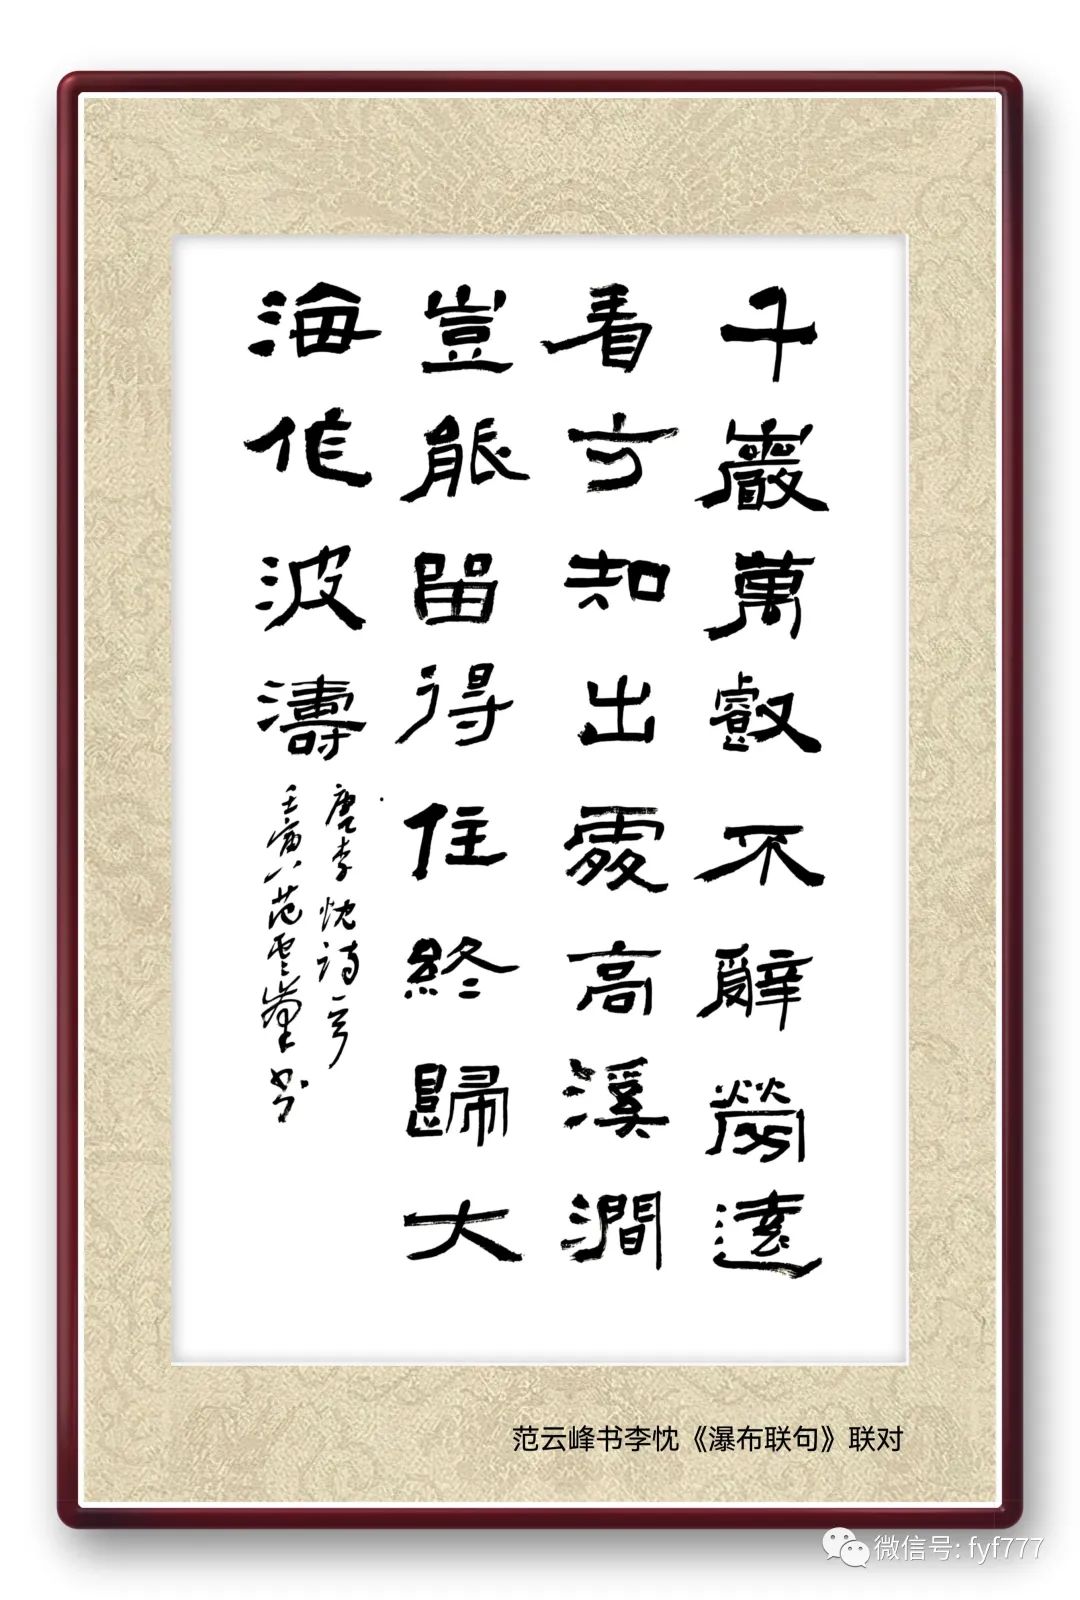 千巖萬叡不辭勞遠
看方知出處高溪澗
豈能留得住終歸大
海作波濤
唐李忱詩
壬寅八范雲峯书
范云峰书李忱《瀑布联句》联对
微信号: fyf777